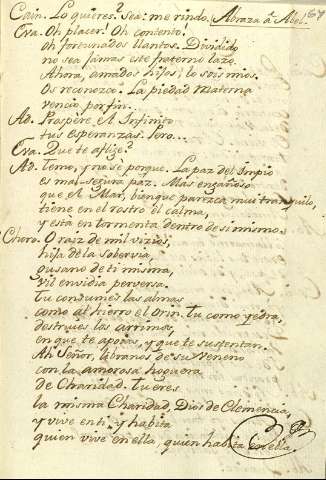 Cain. Lo quieres? Sea: me rindo. Abraza â Abel. 67
Eva. Oh placer! Oh contento!
oh fortunados llantos! Dividido
no sea jamas este fraterno lazo.
Ahora, amados hijos, lo sois mios.
Os reconozco. La piedad materna
vencio por fin...
Ad. Prospère el Infinito
tus esperanzas. Pero...
Eva. Que te aflige?
Ad. Temo, y no sè porque. La paz del Impio
es mal-segura paz. Mas engañoso
que el Mar, bienque parezca mui tranquilo,
tiene en el rostro el calma,
y està en tormenta dentro de si mismo.
Choro. O raiz de mil vizios,
hija de la sobervia,
gusano de ti misma,
vil envidia perversa.
Tu consumes las almas
como al hierro el orin. Tu, como yedra,
destruyes los arrimos,
en que te apoias, y que te sustentan.
Ah Señor, libranos de su veneno
con la amorosa hoguera
de Charidad. Tu eres
la misma Charidad, Dios de Clemencia,
y vive en ti, y habita
quien vive en ella, quien habita en ella.